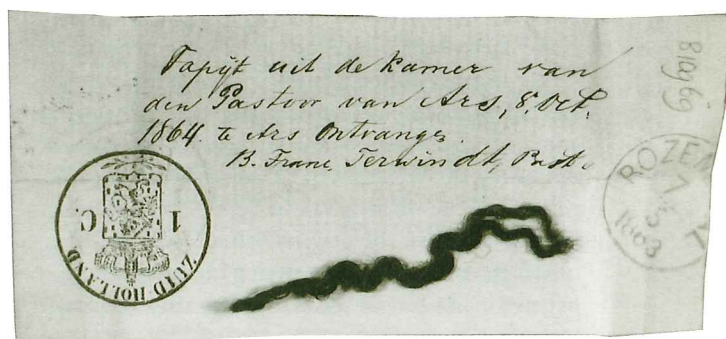 Tapijt uit de kamer van
den Pastoor van Ars, 8. Oct.
1864. te Ars Ontvangen.
B. Franc. Terwindt,
1 C.
ZUID-HOLLAND
ROZEN
1863